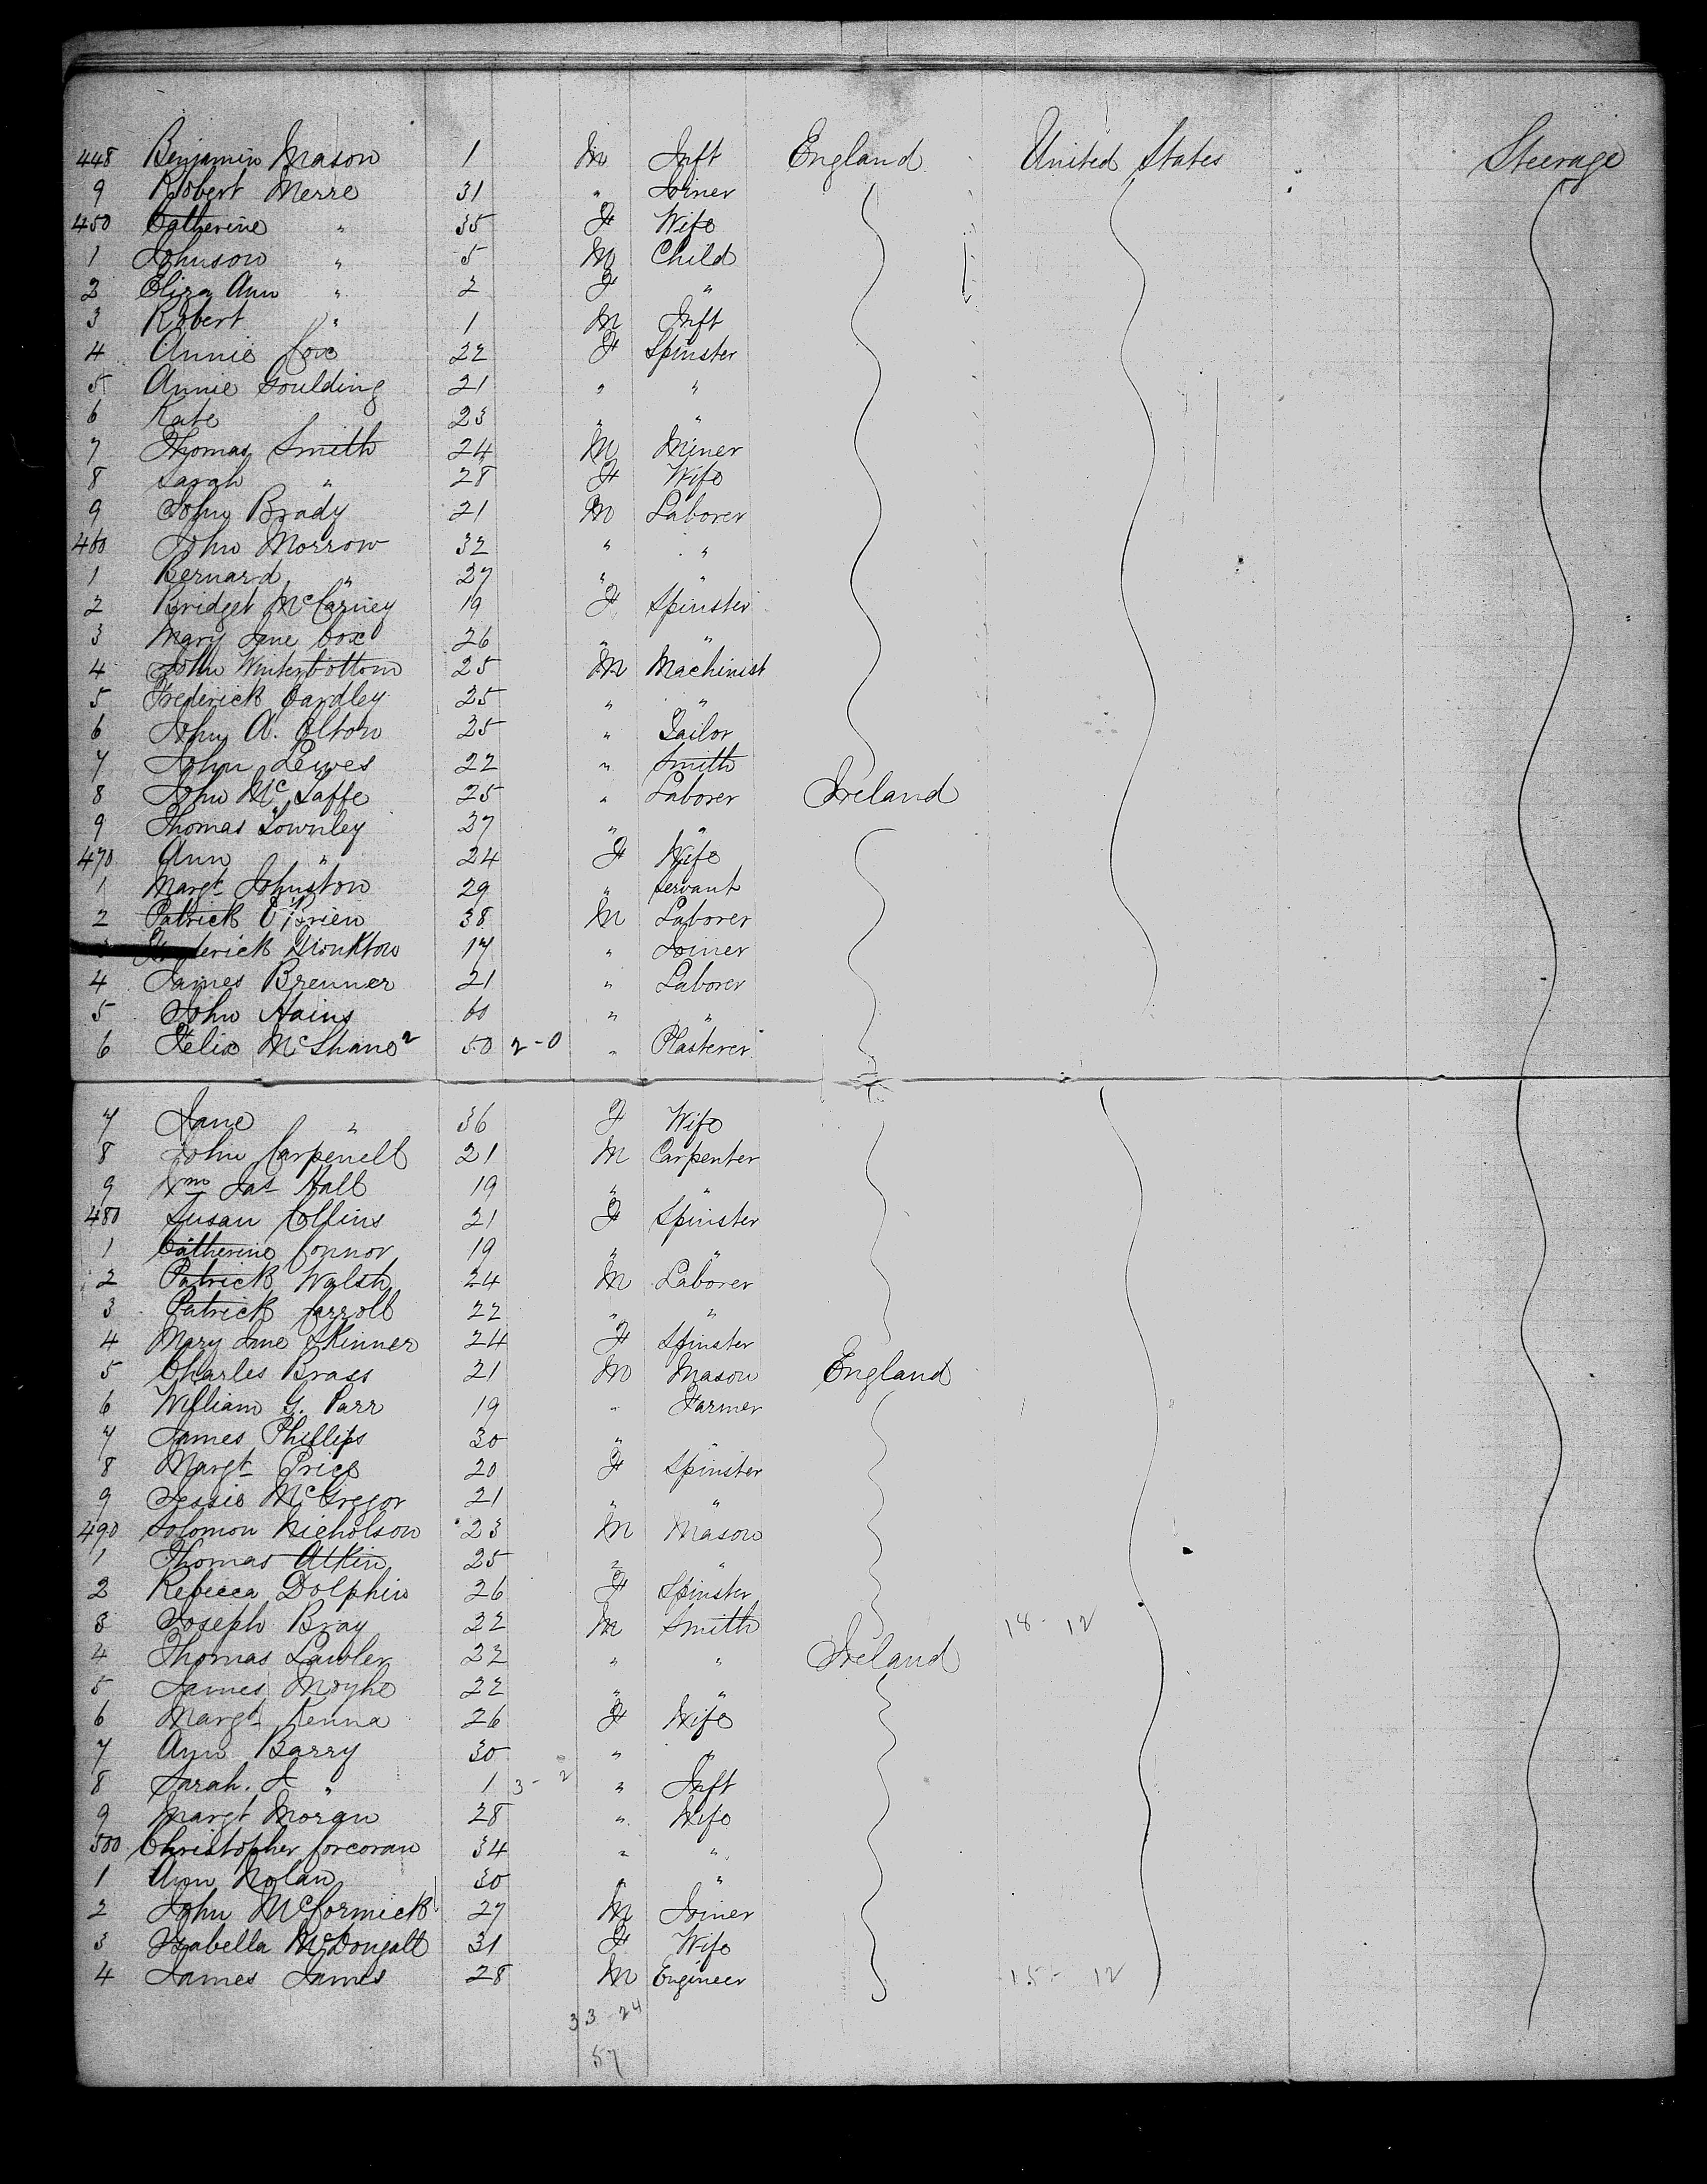 448 Benjamin Mason 1 M Inft England United States Steerage
9 Robert Merre 31 " Joiner
450 Catherine " 35 F Wife
1 Johnson " 5 M Child
2 Eliza Ann " 2 F "
3 Robert " 1 M Inft
4 Annie Cox 22 F Spinster
5 Annie Goulding 21 " "
6 Kate 23 " "
7 Thomas Smith 24 M Miner
8 Sarah " 28 F Wife
9 John Brady 21 M Laborer
460 John Morrow 32 " "
1 Bernard " 27 " "
2 Bridget McCarney 19 F Spinster
3 Mary Jane Cox 26 " "
4 John Winterbottom 25 M Machinist
5 Frederick Cardley 25 " "
6 John A. Olton 35 " Tailor
7 John Lewes 22 " Smith
8 John Mc Taffe 25 " Laborer Ireland
9 Thomas Townley 37 " "
470 Ann " 24 F Wife
1 Margt Johnston 29 " Servant
2 Patrick O'Brien 38 M Laborer
derick Monkton 17 " Joiner
4 James Brenner 21 " Laborer
5 John Hains 60 " "
6 Felix McShane 2 50 2-0 " Plasterer
7 Jane " 36 F Wife
8 John Carpenell 21 M Carpenter
9 Wm Jas Hall 19 " "
480 Susan Collins 21 F Spinster
1 Catherine Connor 19 " "
2 Patrick Walsh 24 M Laborer
3 Patrick Carroll 22 " "
4 Mary Jane Skinner 24 F Spinster
5 Charles Brass 21 M Mason England
6 William G. Parr 19 " Farmer
7 James Phillips 30 " "
8 Margt Price 20 F Spinster
9 Jessie McGregor 21 " "
490 Solomon Nicholson 23 M Mason
1 Thomas Atkin 25 " "
2 Rebecca Dolphin 26 F Spinster
3 Joseph Bray 22 M Smith 18-12
4 Thomas Lawler 22 " " Ireland
5 James Moyhe 22 " "
6 Margt Kenna 26 F Wife
7 Ann Barry 30 " "
8 Sarah. J " 1 3-2 " Inft
9 Margt Moran 28 " Wife
500 Christopher Corcoran 34 " "
1 Ann Nolan 30 " "
2 John McCormick 27 M Joiner
3 Isabella McDougall 31 F Wife
4 James James 28 M Engineer 15-12
33 24
57